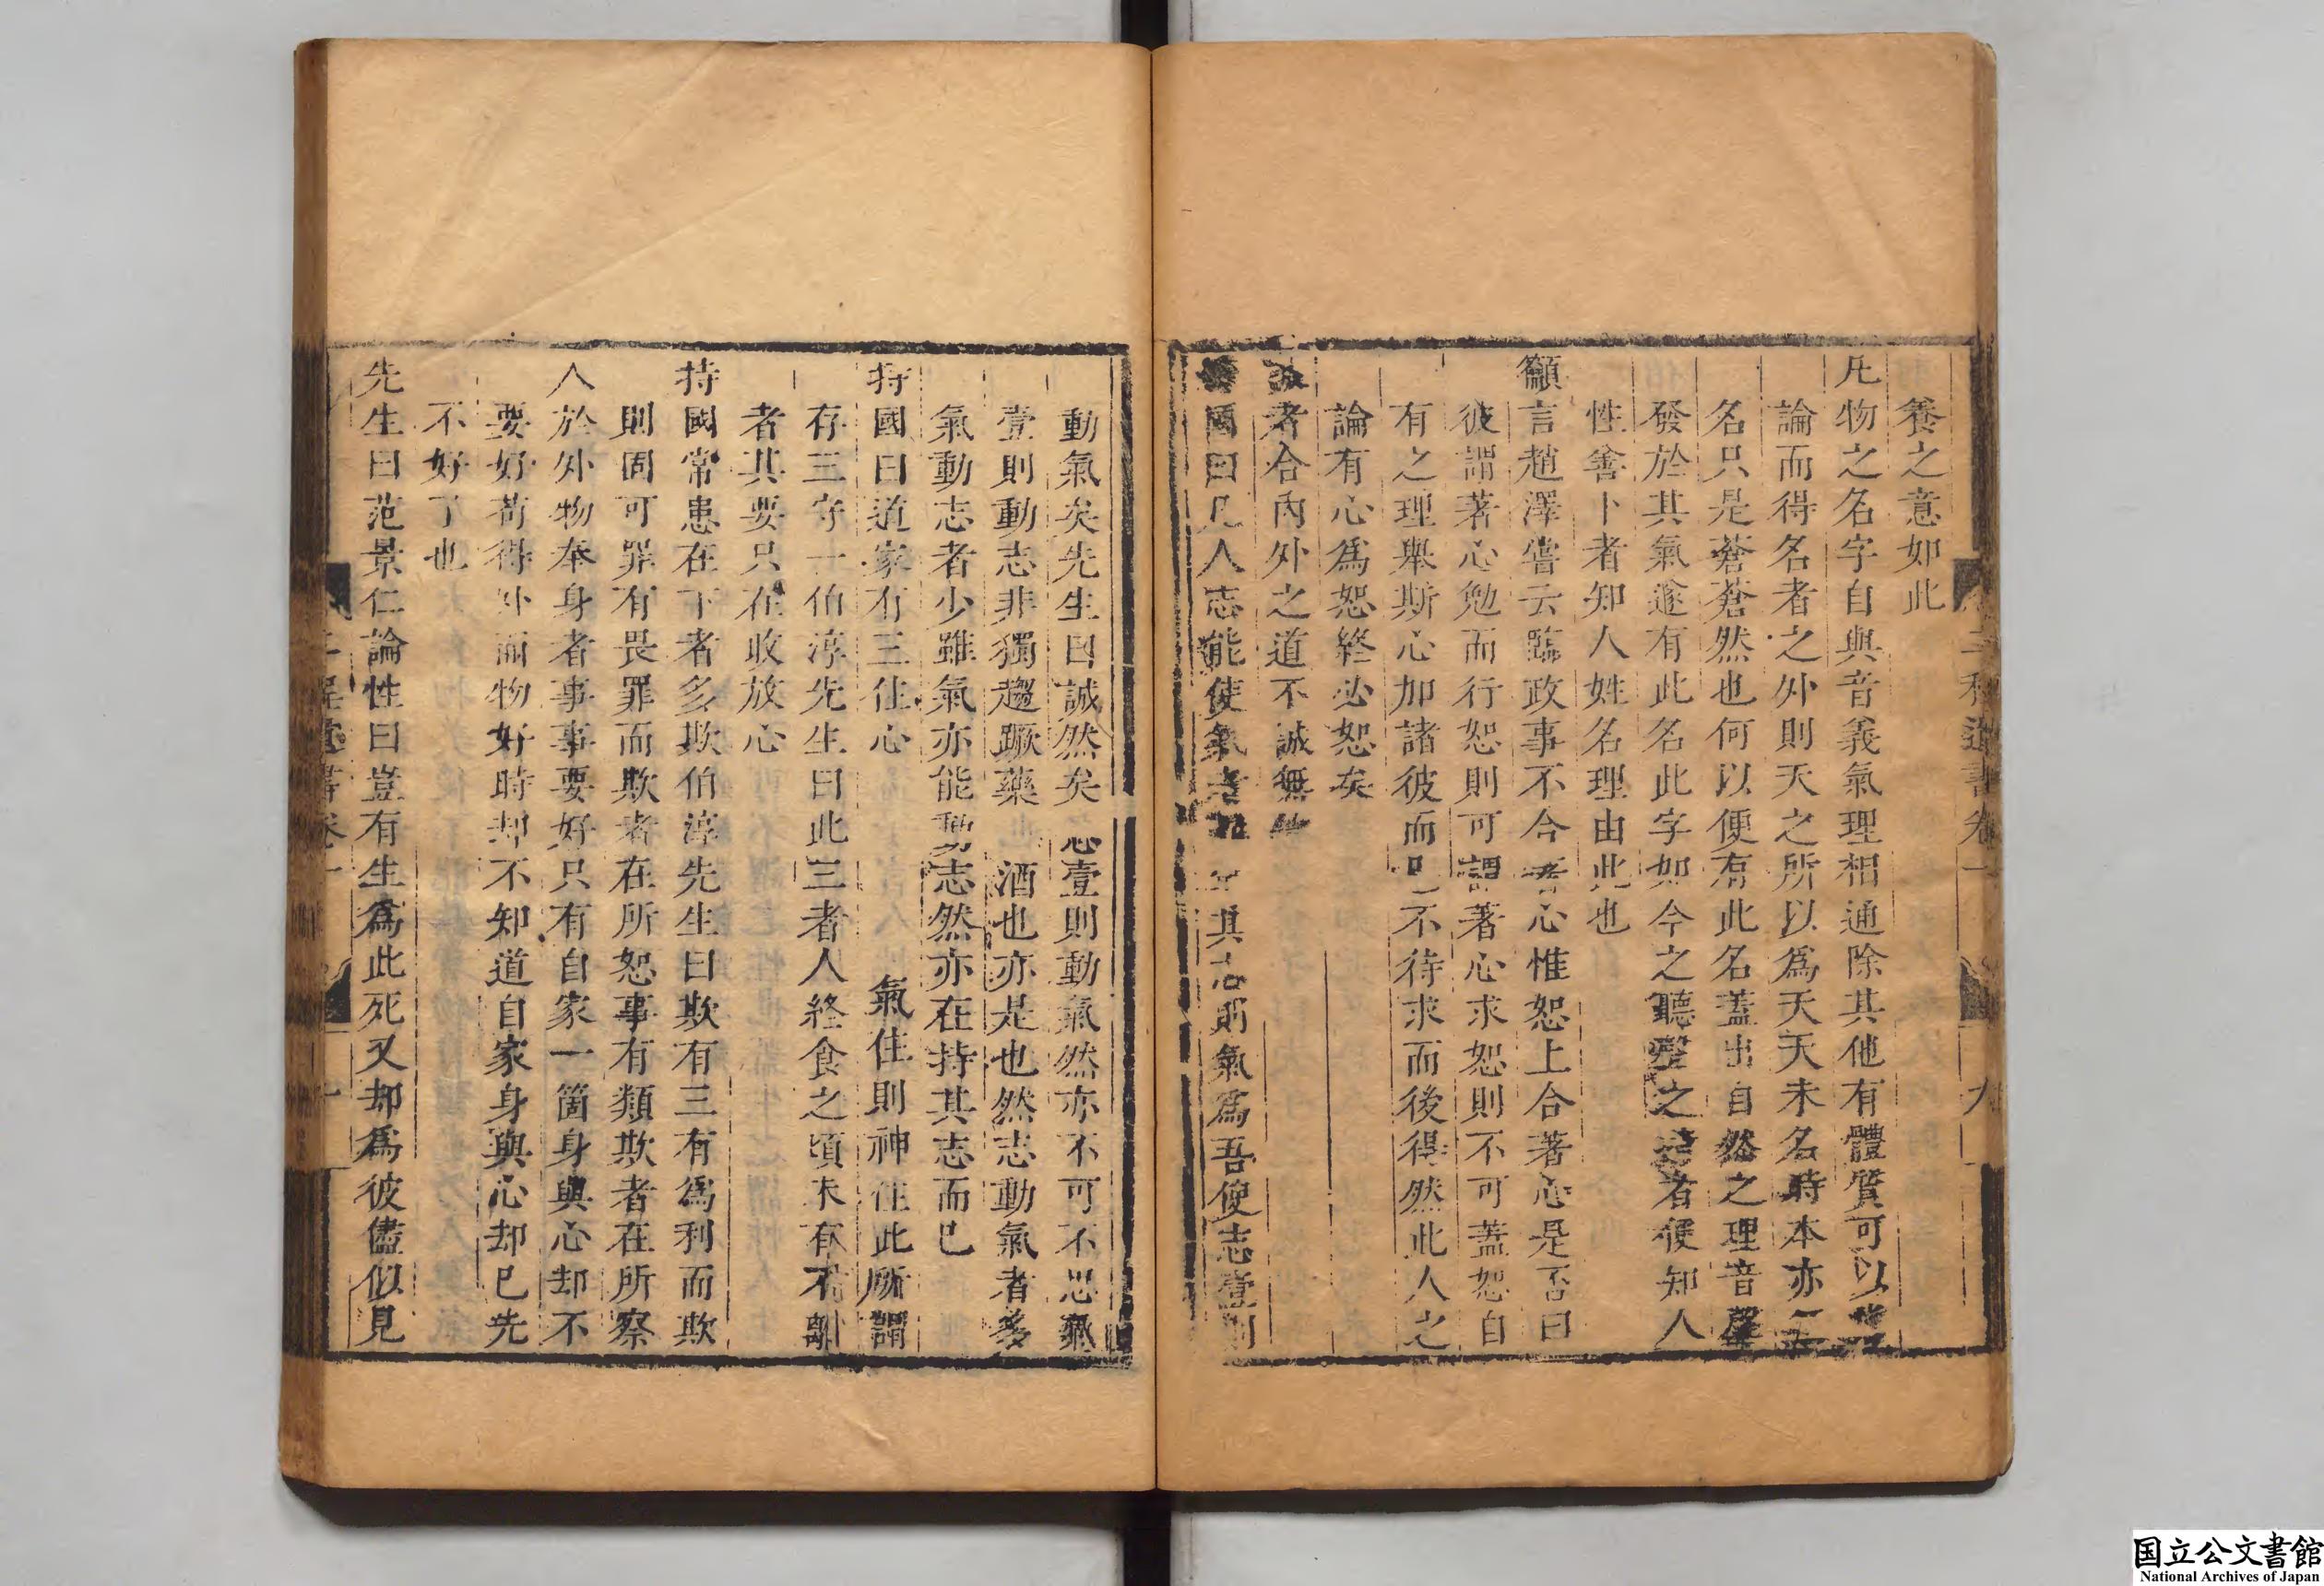 養之意如此
凡物之名字自與音義氣理相通除其他有體質可以
論而得名者之外則天之所以爲天天未名時本亦
名只是蒼蒼然也何以便有此名蓋出自然之理音聲
發於其氣遂有此名此字如今之聽聲之者便知人
性善卜者知人姓名理由此也
籲言趙澤嘗云臨政事不合著心惟恕上合著心是否曰
彼謂著心勉而行恕則可謂著心求恕則不可蓋恕自
有之理舉斯心加諸彼而已不待求而後得然此人之
論有心爲恕終必恕矣
誠者合內外之道不誠無
國曰凡人志能使氣者其志則氣爲吾使志壹則
動氣矣先生曰誠然矣志壹則動氣然亦不可不思氣
壹則動志非獨趨蹶藥酒也亦是也然志動氣者多
氣動志者少雖氣亦能動志然亦在持其志而已
持國曰道家有三住心氣住則神住此所謂
存三守一伯淳先生曰此三者人終食之頃未有不離
者其要只在收放心
持國常患在下者多欺伯淳先生曰欺有三有爲利而欺
則固可罪有畏罪而欺者在所恕事有類欺者在所察
人於外物奉身者事事要好只有自家一箇身與心却不
要好苟得外面物好時却不知道自家身與心却已先
不好了也
先生曰范景仁論性曰豈有生爲此死又却爲彼儘似見
二程遺書卷一
九
国立公文書館
National Archives of Japan